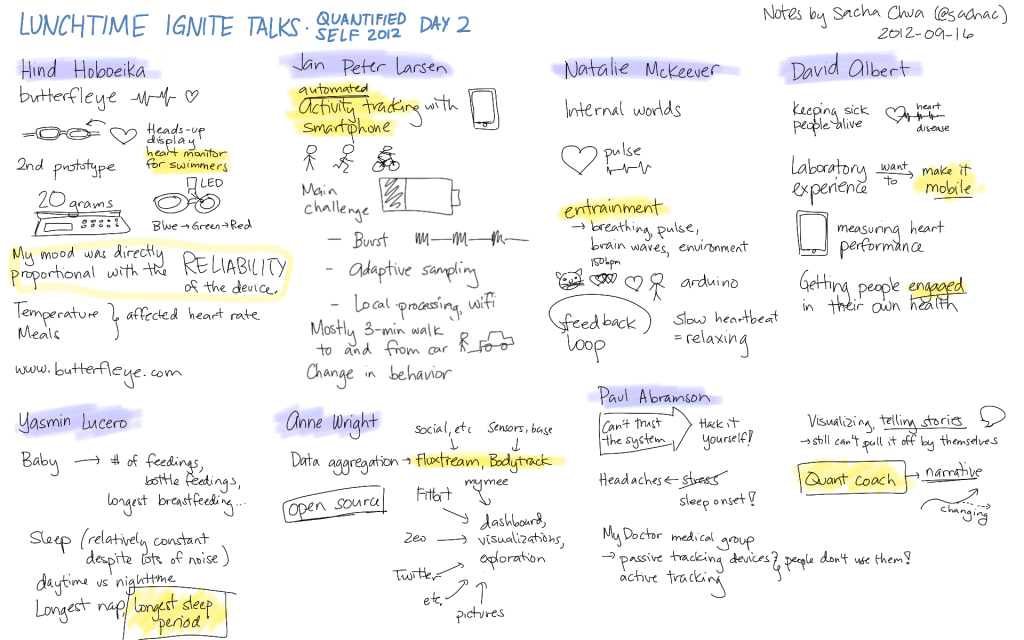 LUNCHTIME IGNITE TALKS · QUANTIFIED SELF 2012 DAY 2
Notes by Sacha Chua (@sachac)
2012-09-16
Hind Hoboeika
butterfleye
Heads-up
display
heart monitor
for swimmers
2nd prototype
20 grams
LED
Blue → Green → Red
My mood was directly
proportional with the RELIABILITY
of the device.
Temperature
Meals
} affected heart rate
www.butterfleye.com
Jan Peter Larsen
automated
Activity tracking with
smartphone
Main
challenge
- Burst
- Adaptive sampling
- Local processing, wifi
Mostly 3-min walk
to and from car
Change in behavior
Natalie McKeever
Internal worlds
pulse
entrainment
→ breathing, pulse,
brain waves, environment
150bpm
arduino
feedback
loop
Slow heartbeat
= relaxing
David Albert
Keeping sick
people alive
heart
disease
Laboratory
experience
want
to
→ make it
mobile
measuring heart
performance
Getting people engaged
in their own health
Yasmin Lucero
Baby → # of feedings,
bottle feedings,
longest breastfeeding...
Sleep (relatively constant
despite lots of noise)
daytime vs nighttime
Longest nap, longest sleep
period
Anne Wright
social, etc
sensors, base
Data aggregation → Fluxtream, Bodytrack
mymee
open source
Fitbit
Zeo
Twitter
etc.
pictures
dashboard,
visualizations,
exploration
Paul Abramson
Can't trust
the system
Hack it
yourself!
Headaches ← stress
sleep onset!
MyDoctor medical group
→ passive tracking devices
active tracking
} people don't use them!
Visualizing, telling stories
→ still can't pull it off by themselves
Quant coach → narrative
changing